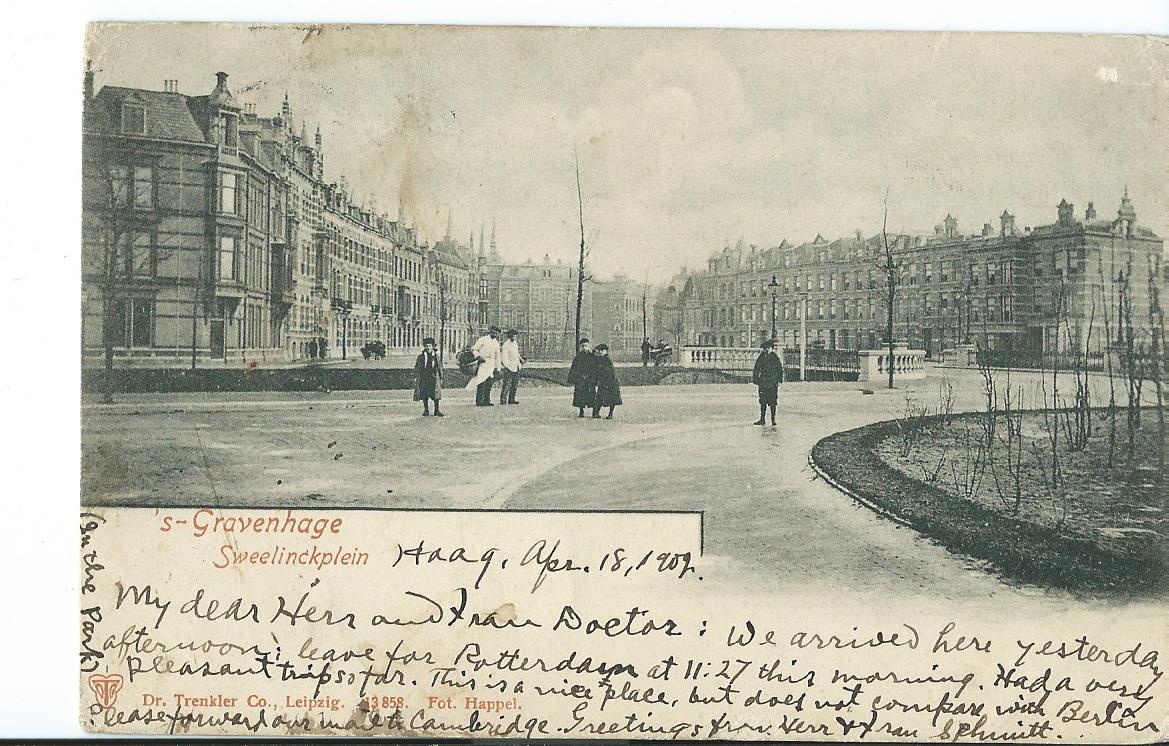 's-Gravenhage
Sweelinckplein
Haag, Apr. 18, 1902.
(In the Park)
My dear Herr and Frau Doctor: We arrived here yesterday
afternoon; leave for Rotterdam at 11:27 this morning. Had a very
pleasant trip so far. This is a nice place, but does not compare with Berlin
Dr. Trenkler Co., Leipzig. 13 858. Fot. Happel.
Please forward our mail to Cambridge. Greetings from Herr & Frau Schmitt.